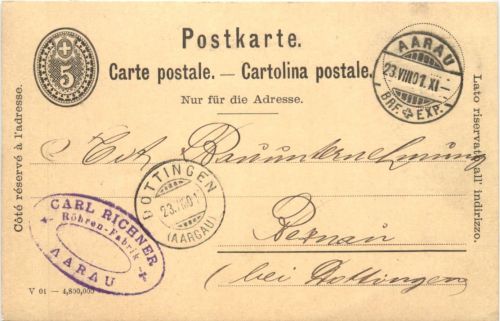 5
Postkarte.
Carte postale. — Cartolina postale.
Nur für die Adresse.
Côté réservé à l'adresse.
Lato riservato all' indirizzo.
AARAU
23.VIII01.XI-
BRF. EXP.
Tit. Bauunternehmung
Bernau
(bei Dottingen
DOTTINGEN
23.VIII01
(AARGAU)
CARL RICHNER
Röhren-Fabrik
AARAU
V 01 - 4,800,000